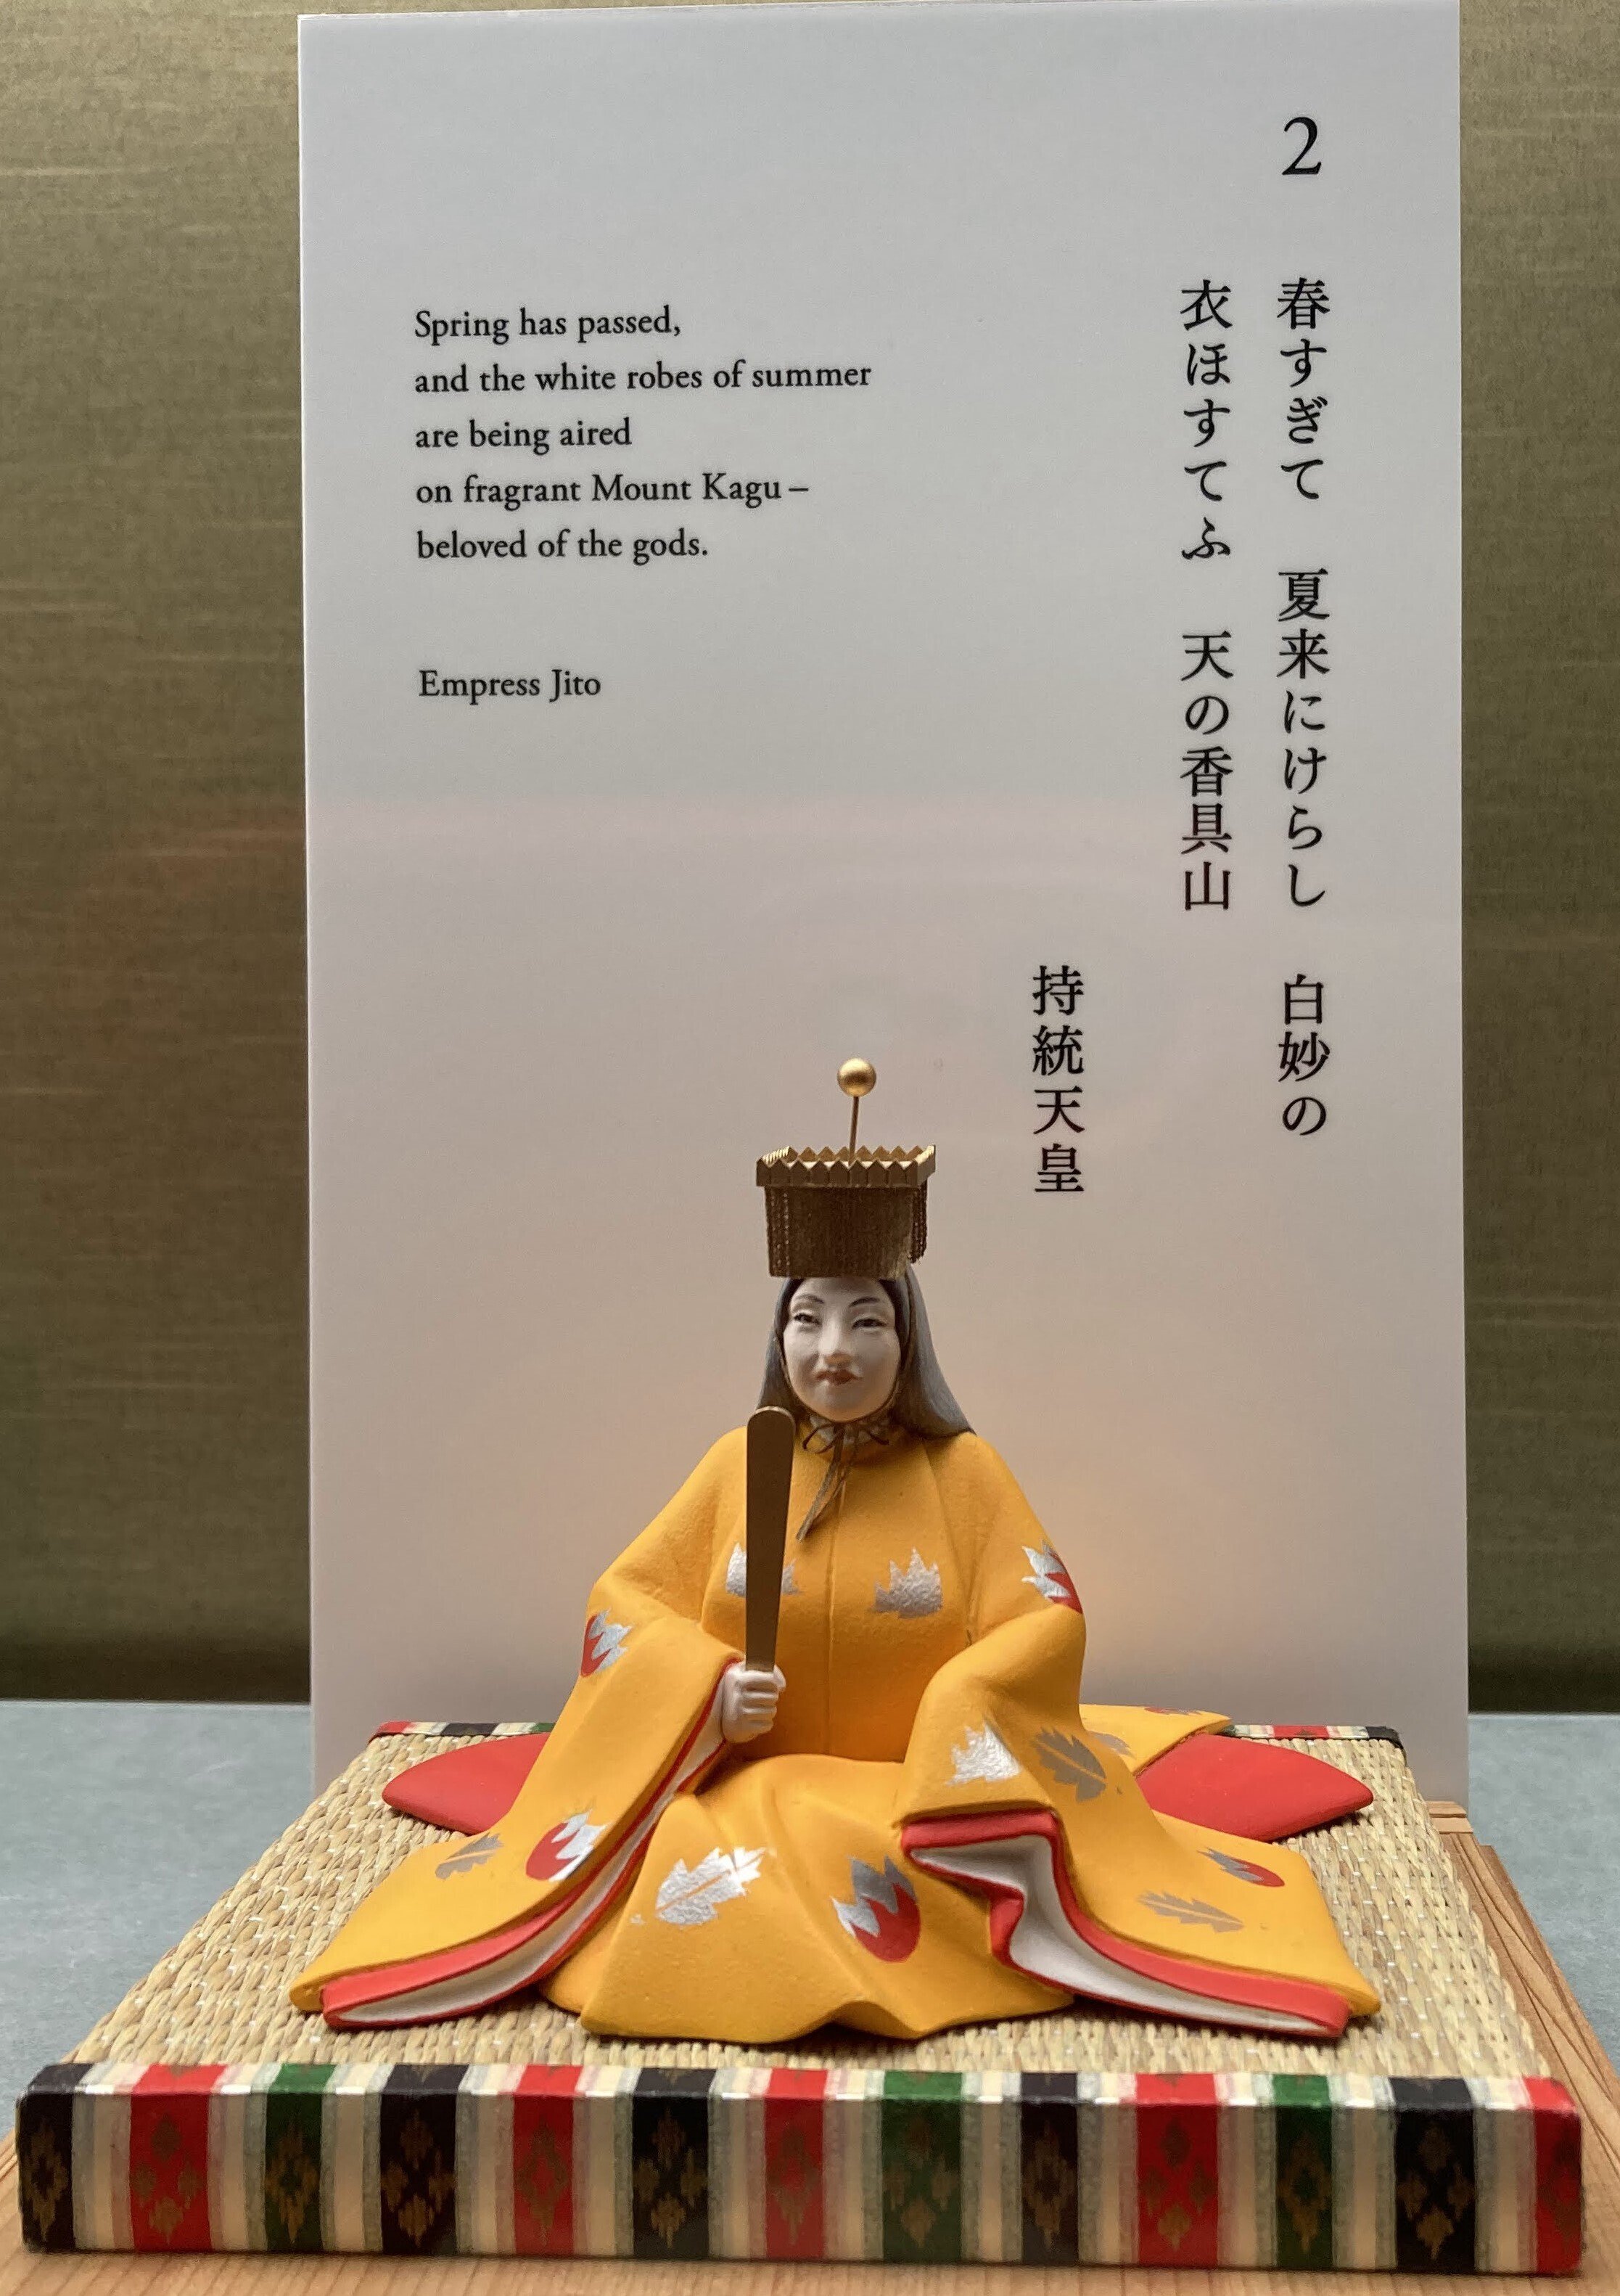 2
春すぎて　夏来にけらし　白妙の
衣ほすてふ　天の香具山
持統天皇
Spring has passed,
and the white robes of summer
are being aired
on fragrant Mount Kagu –
beloved of the gods.
Empress Jito